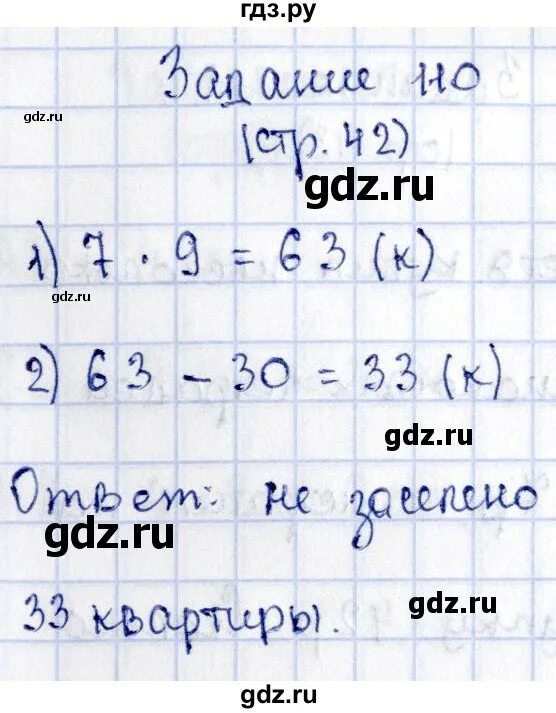 гдз.ру
Задание 110
gdz.ru
(стр. 42)
gdz.ru
1) 7 · 9 = 63 (к)
gdz.ru
2) 63 - 30 = 33 (к)
gdz.ru
Ответ: не заселено
gdz.ru
33 квартиры.
gdz.ru
gdz.ru